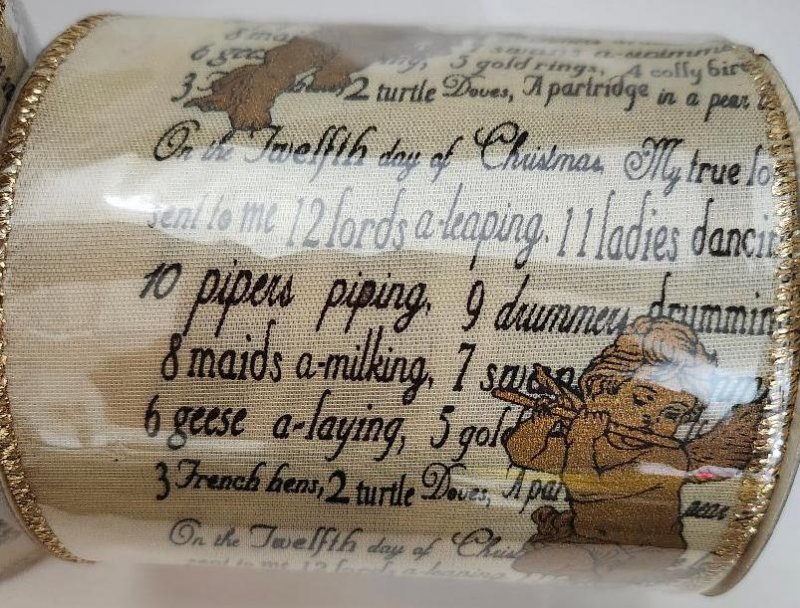 6 geese
5 gold rings, 4 colly bir
3 2 turtle Doves, A partridge in a pear
On the Twelfth day of Christmas My true lo
sent to me 12 lords a-leaping, 11 ladies dancin
10 pipers piping, 9 drummers drummin
8 maids a-milking, 7 swan
6 geese a-laying, 5 gold
3 French hens, 2 turtle Doves, A par
pear
On the Twelfth day of Chris
sent to me 12 lords a-leaping